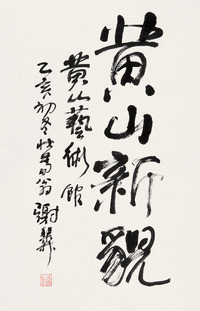 黄山新貌
黄山藝術館
乙亥初冬壮暮翁謝稚